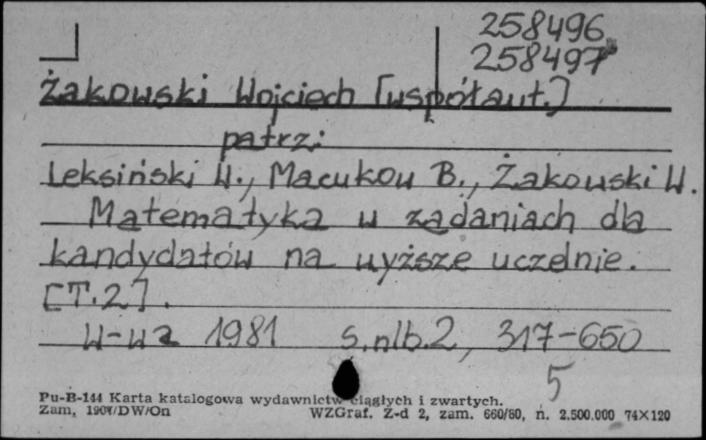 258496
258497
Żakowski Wojciech [współaut.]
patrz:
Leksiński W., Macukow B., Żakowski W.
Matematyka w zadaniach dla
kandydatów na wyższe uczelnie.
[T.2].
W-wa 1981 s.nlb.2, 317-650
5
Pu-B-144 Karta katalogowa wydawnictw ciągłych i zwartych.
Zam, /DW/On WZGraf. Z-d 2, zam. 660/80, n. 2.500.000 74X120